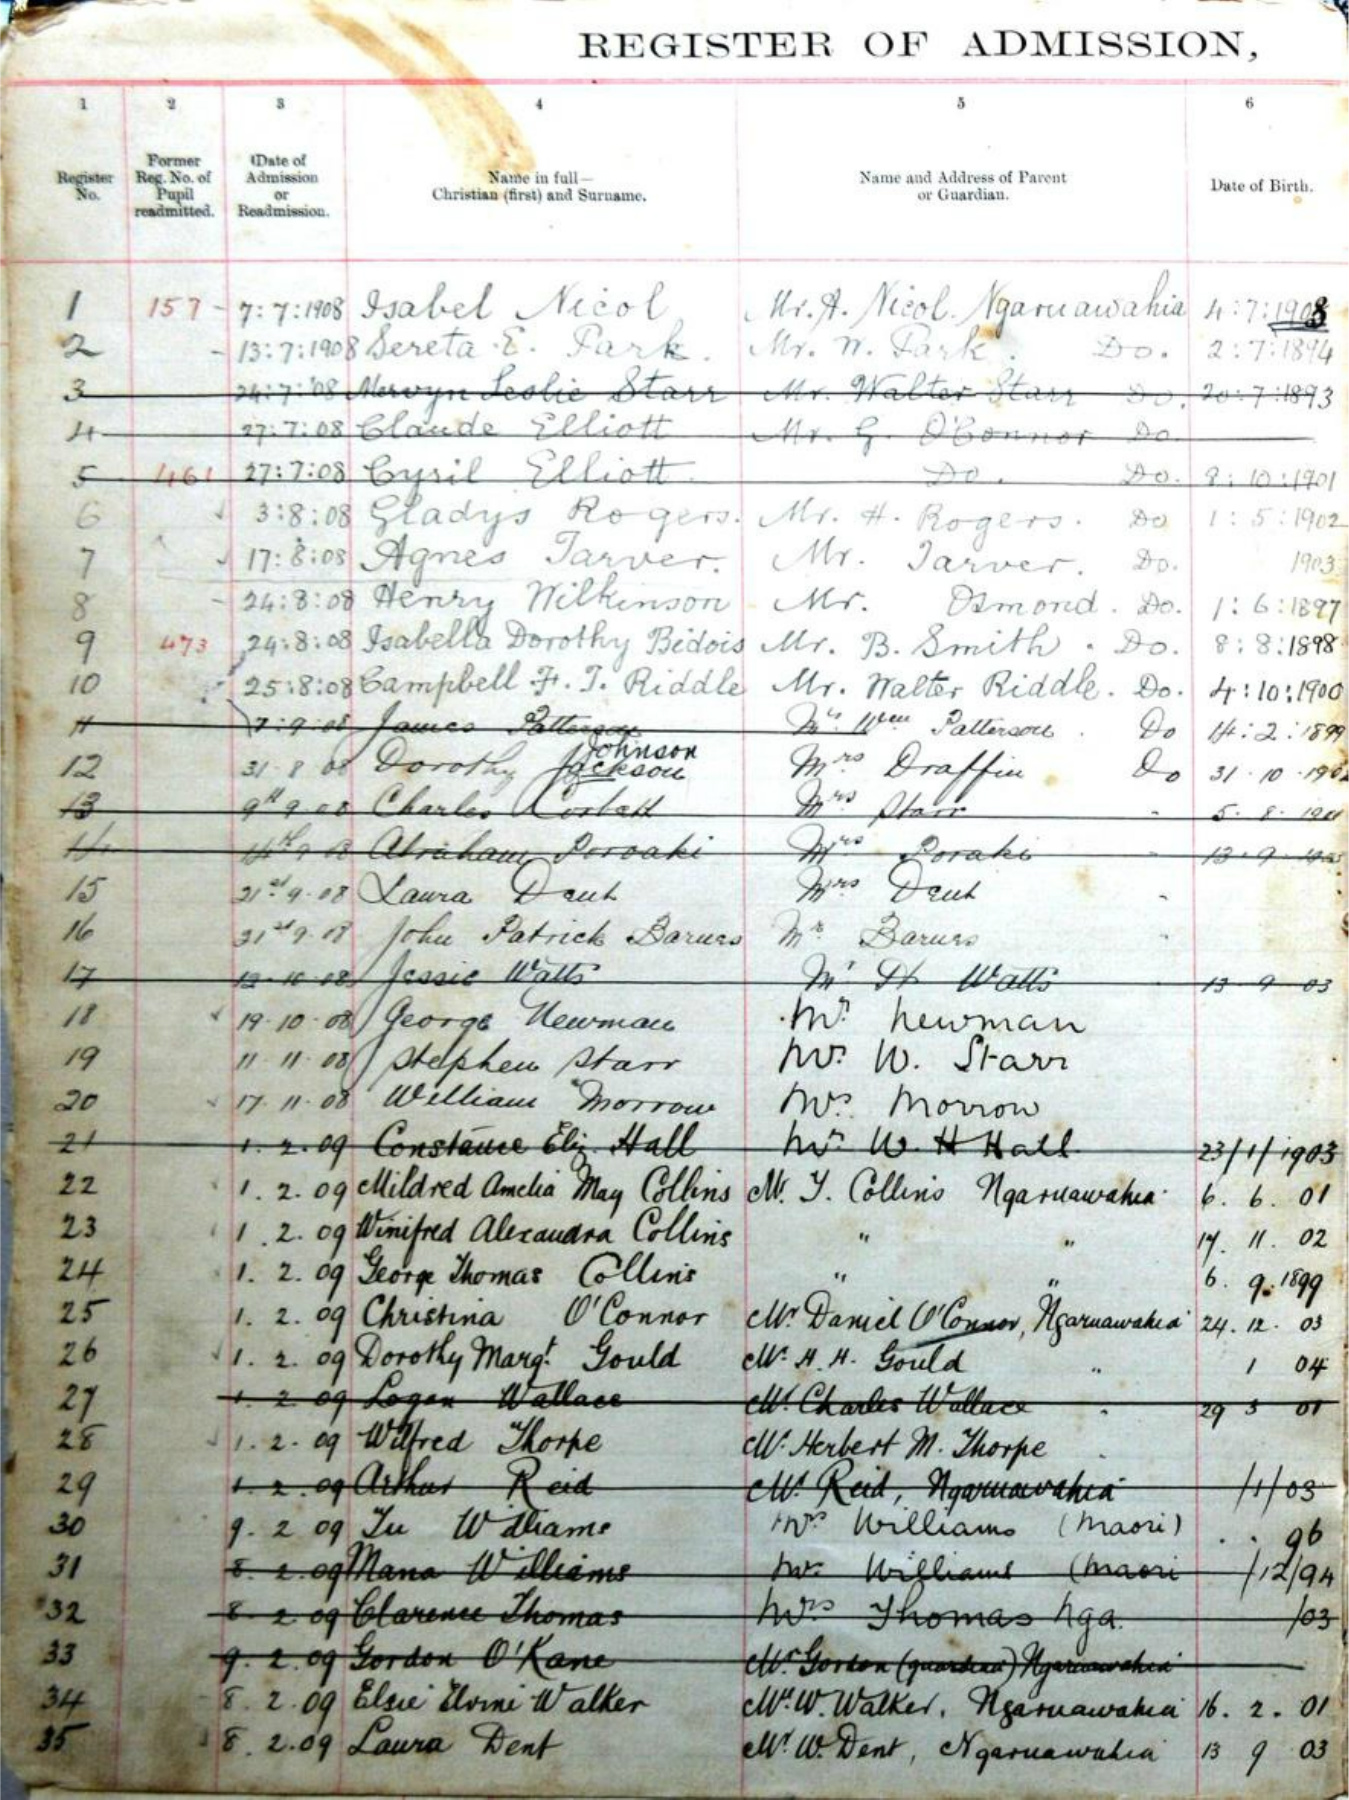 REGISTER OF ADMISSION,
1 2 3 4 5 6
Register No. Former Reg. No. of Pupil readmitted. Date of Admission or Readmission. Name in full— Christian (first) and Surname. Name and Address of Parent or Guardian. Date of Birth.
1 157 - 7:7:1908 Isabel Nicol Mr. A. Nicol. Ngaruawahia 4:7:1903
2 - 13:7:1908 Sereta E. Park. Mr. W. Park. Do. 2:7:1894
3 24:7:08 Mervyn Leslie Starr Mr. Walter Starr Do. 20:7:1893
4 27:7:08 Claude Elliott Mr. G. O'Connor Do.
5 461 27:7:08 Cyril Elliott Do. Do. 9:10:1901
6 3:8:08 Gladys Rogers. Mr. H. Rogers. Do 1:5:1902
7 17:8:08 Agnes Tarver. Mr. Tarver. Do. 1903
8 - 24:8:08 Henry Wilkinson Mr. Osmond. Do. 1:6:1897
9 473 24:8:08 Isabella Dorothy Bidois Mr. B. Smith. Do. 8:8:1898
10 25:8:08 Campbell F. T. Riddle Mr. Walter Riddle. Do. 4:10:1900
11 7:9:08 James Patterson Mr Wm Patterson. Do 14:2:1899
12 31 8 08 Dorothy Jackson Johnson Mrs Draffin Do 31.10.190
13 9th 9 08 Charles Corbett Mrs Starr " 5.8.1901
14 14th 9 08 Abraham Poroaki Mrs Poraki " 13.9
15 21st 9.08 Laura Dent Mrs Dent "
16 21st 9.08 John Patrick Barnes Mr. Barnes "
17 12.10.08 Jessie Watts Mr H Watts 13 9 03
18 19.10.08 George Newman Mr. Newman
19 11.11.08 Stephen Starr Mr. W. Starr
20 17.11.08 William Morrow Mr. Morrow
21 1.2.09 Constance Eliz. Hall Mr. W. H Hall 23/1/1903
22 1.2.09 Mildred Amelia May Collins Mr. T. Collins Ngaruawahia 6.6.01
23 1.2.09 Winifred Alexandra Collins " " 17.11.02
24 1.2.09 George Thomas Collins " " 6.9.1899
25 1.2.09 Christina O'Connor Mr Daniel O'Connor, Ngaruawahia 24.12.03
26 1.2.09 Dorothy Margt. Gould Mr. H. H. Gould " 1 04
27 1 2 09 Logan Wallace Mr. Charles Wallace " 29 3 01
28 1.2.09 Wilfred Thorpe Mr. Herbert M. Thorpe
29 1.2.09 Arthur Reid Mr. Reid, Ngaruawahia /1/03
30 9.2 09 Tu Williams Mr. Williams (Maori) . . 96
31 8.2.09 Mana Williams Mr. Williams (Maori /12/94
32 8.2.09 Clarence Thomas Mrs Thomas Nga. /03
33 9.2.09 Gordon O'Kane Mr. Gordon (guardian) Ngaruawahia
34 8.2.09 Elsie Walker Mr. W. Walker, Ngaruawahia 16.2.01
35 8.2.09 Laura Dent Mr. W. Dent, Ngaruawahia 13 9 03